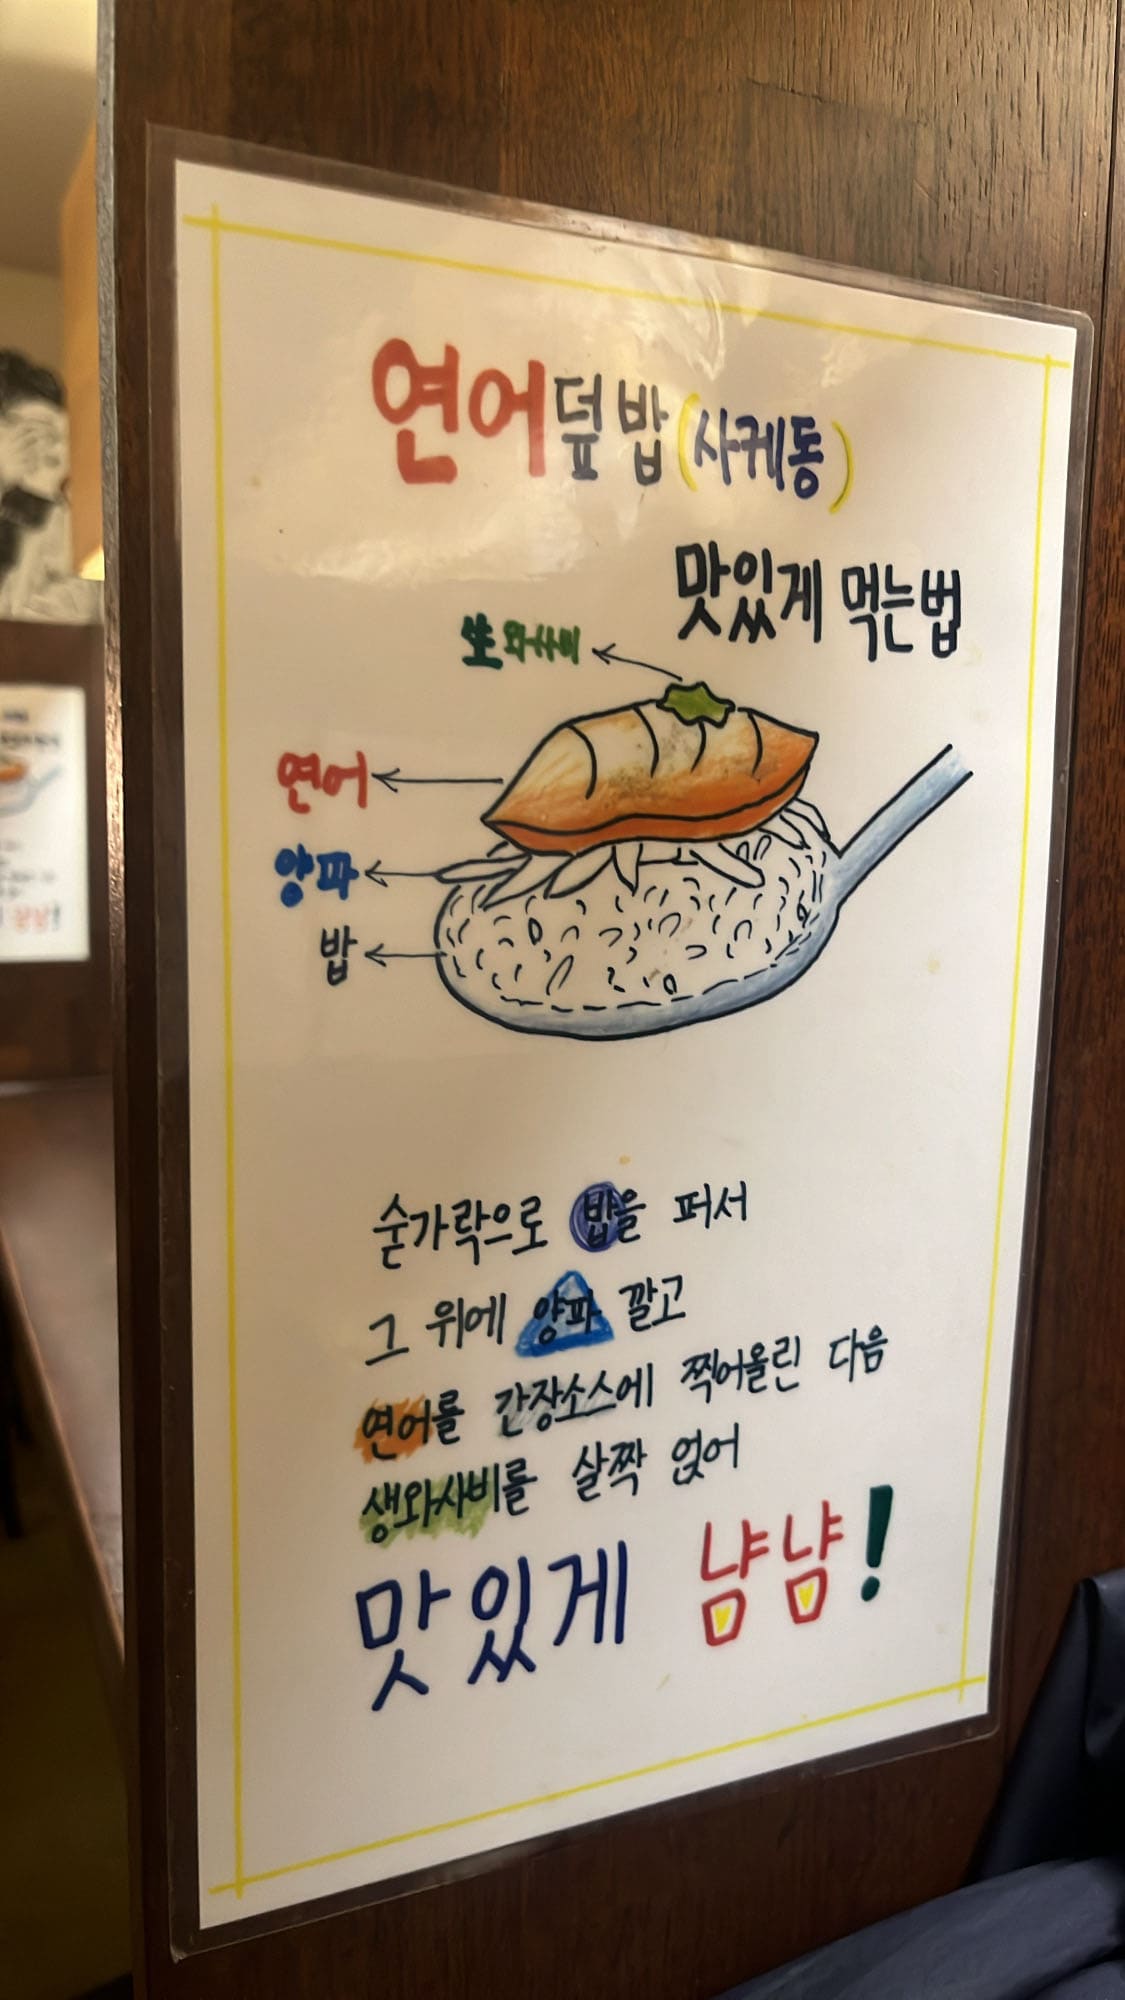 연어덮밥(사케동)
맛있게 먹는법
生와사비
연어
양파
밥
숟가락으로 밥을 퍼서
그 위에 양파 깔고
연어를 간장소스에 찍어올린 다음
생와사비를 살짝 얹어
맛있게 냠냠!